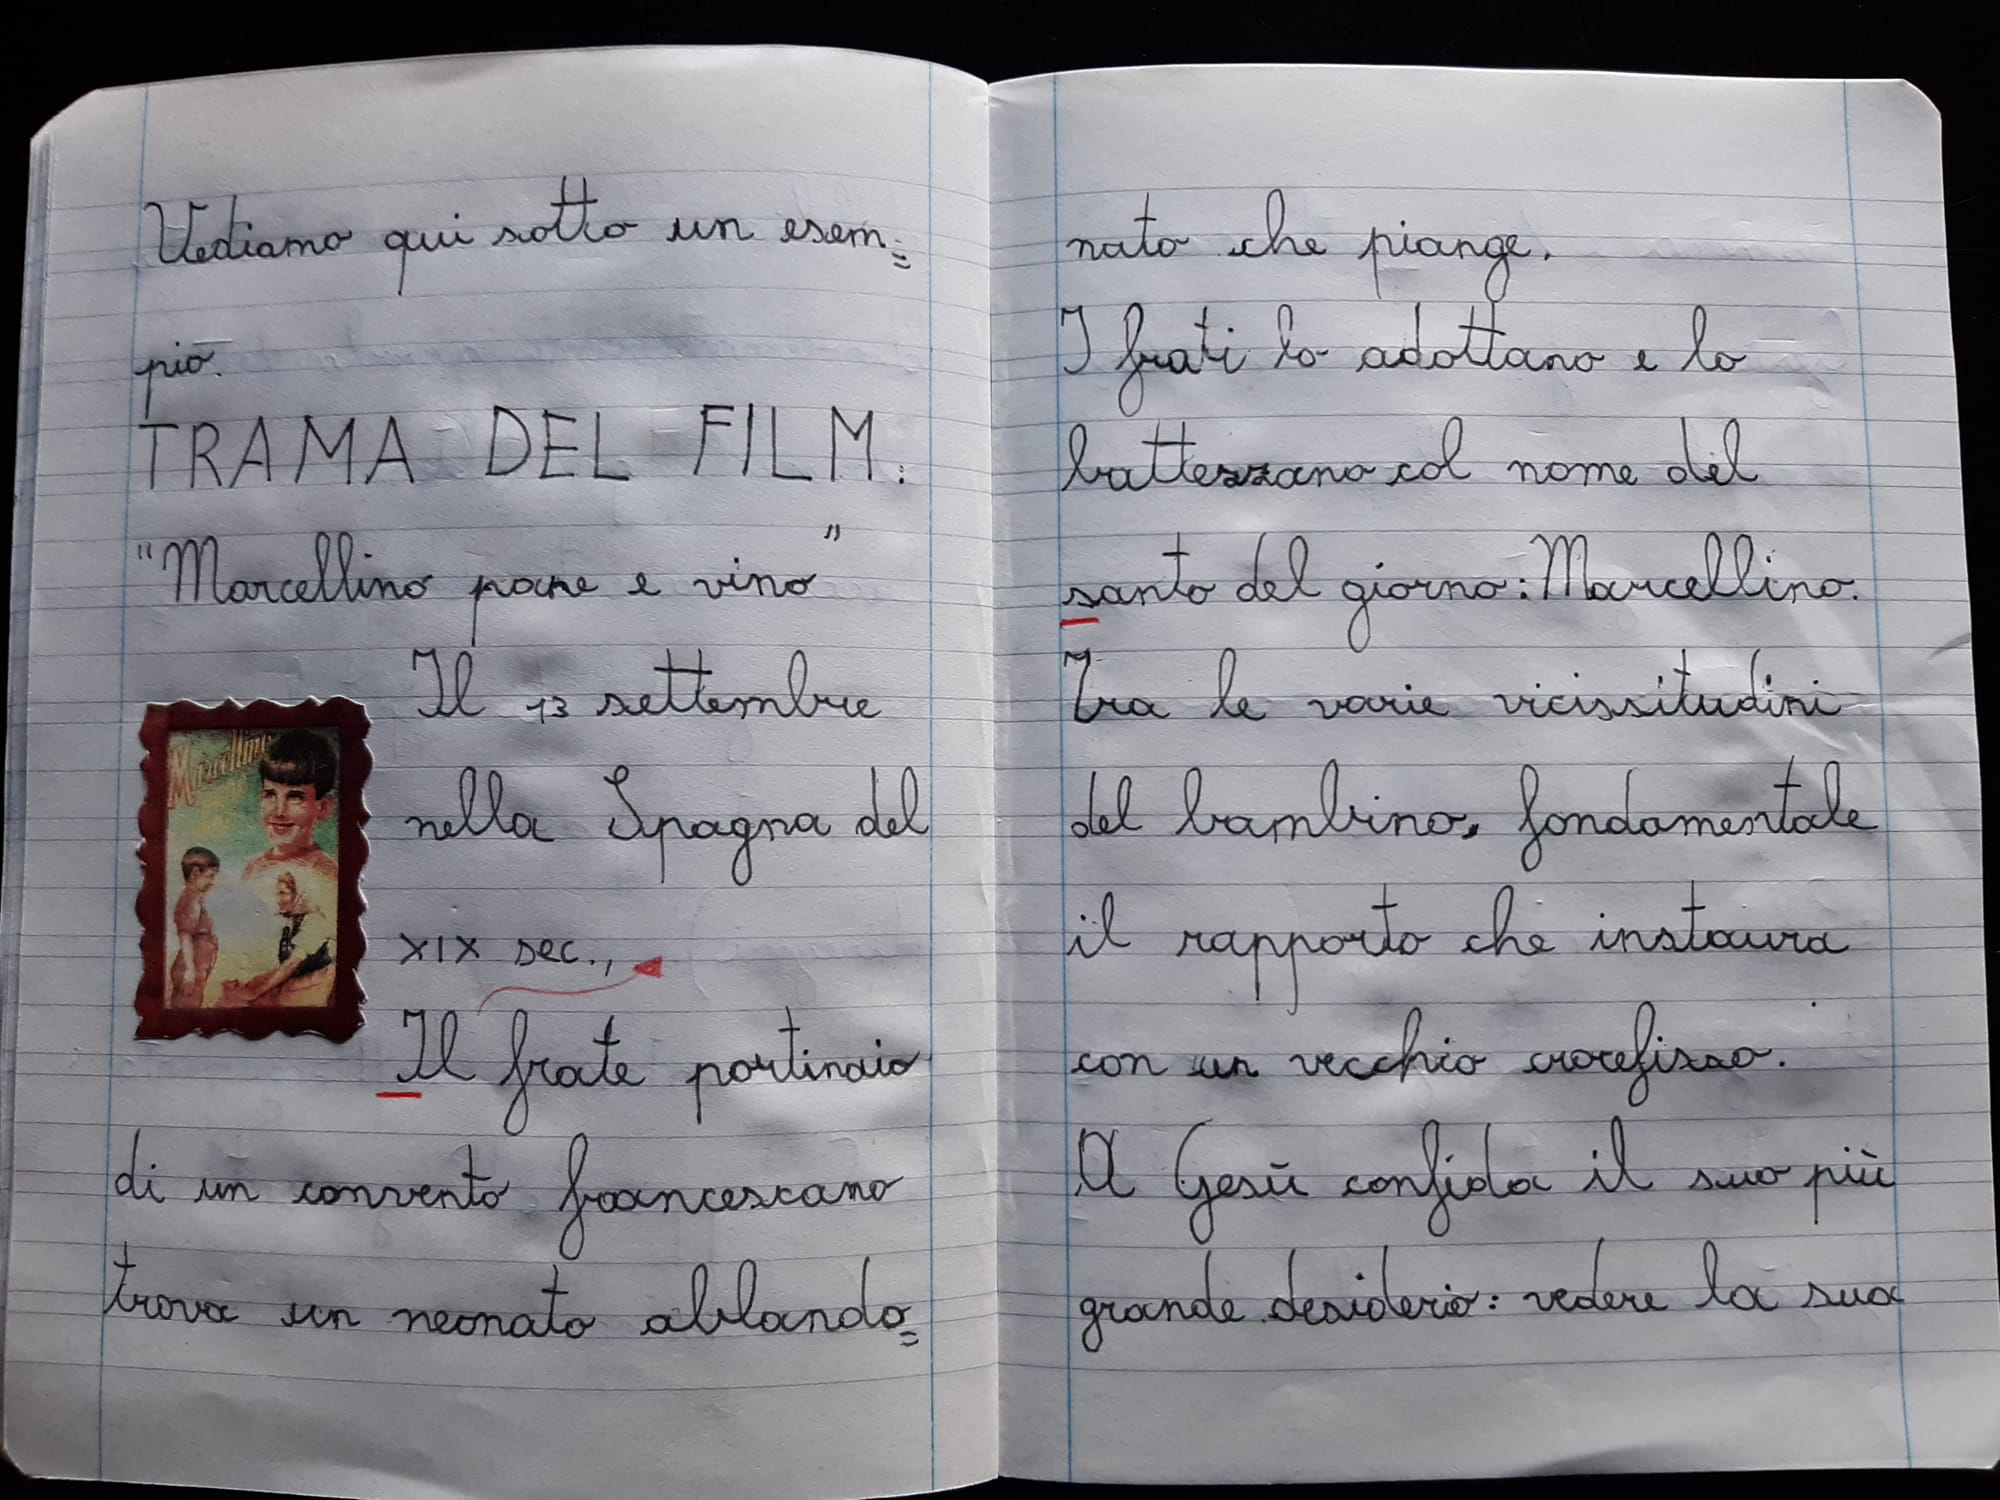 Vediamo qui sotto un esem=
pio.
TRAMA DEL FILM:
"Marcellino pane e vino"
Il 13 settembre
nella Spagna del
XIX sec.,
Marcellino
Il frate portinaio
di un convento francescano
trova un neonato abbando=
nato che piange.
I frati lo adottano e lo
battezzano col nome del
santo del giorno: Marcellino.
Tra le varie vicissitudini
del bambino, fondamentale
il rapporto che instaura
con un vecchio crocefisso.
A Gesù confida il suo più
grande desiderio: vedere la sua